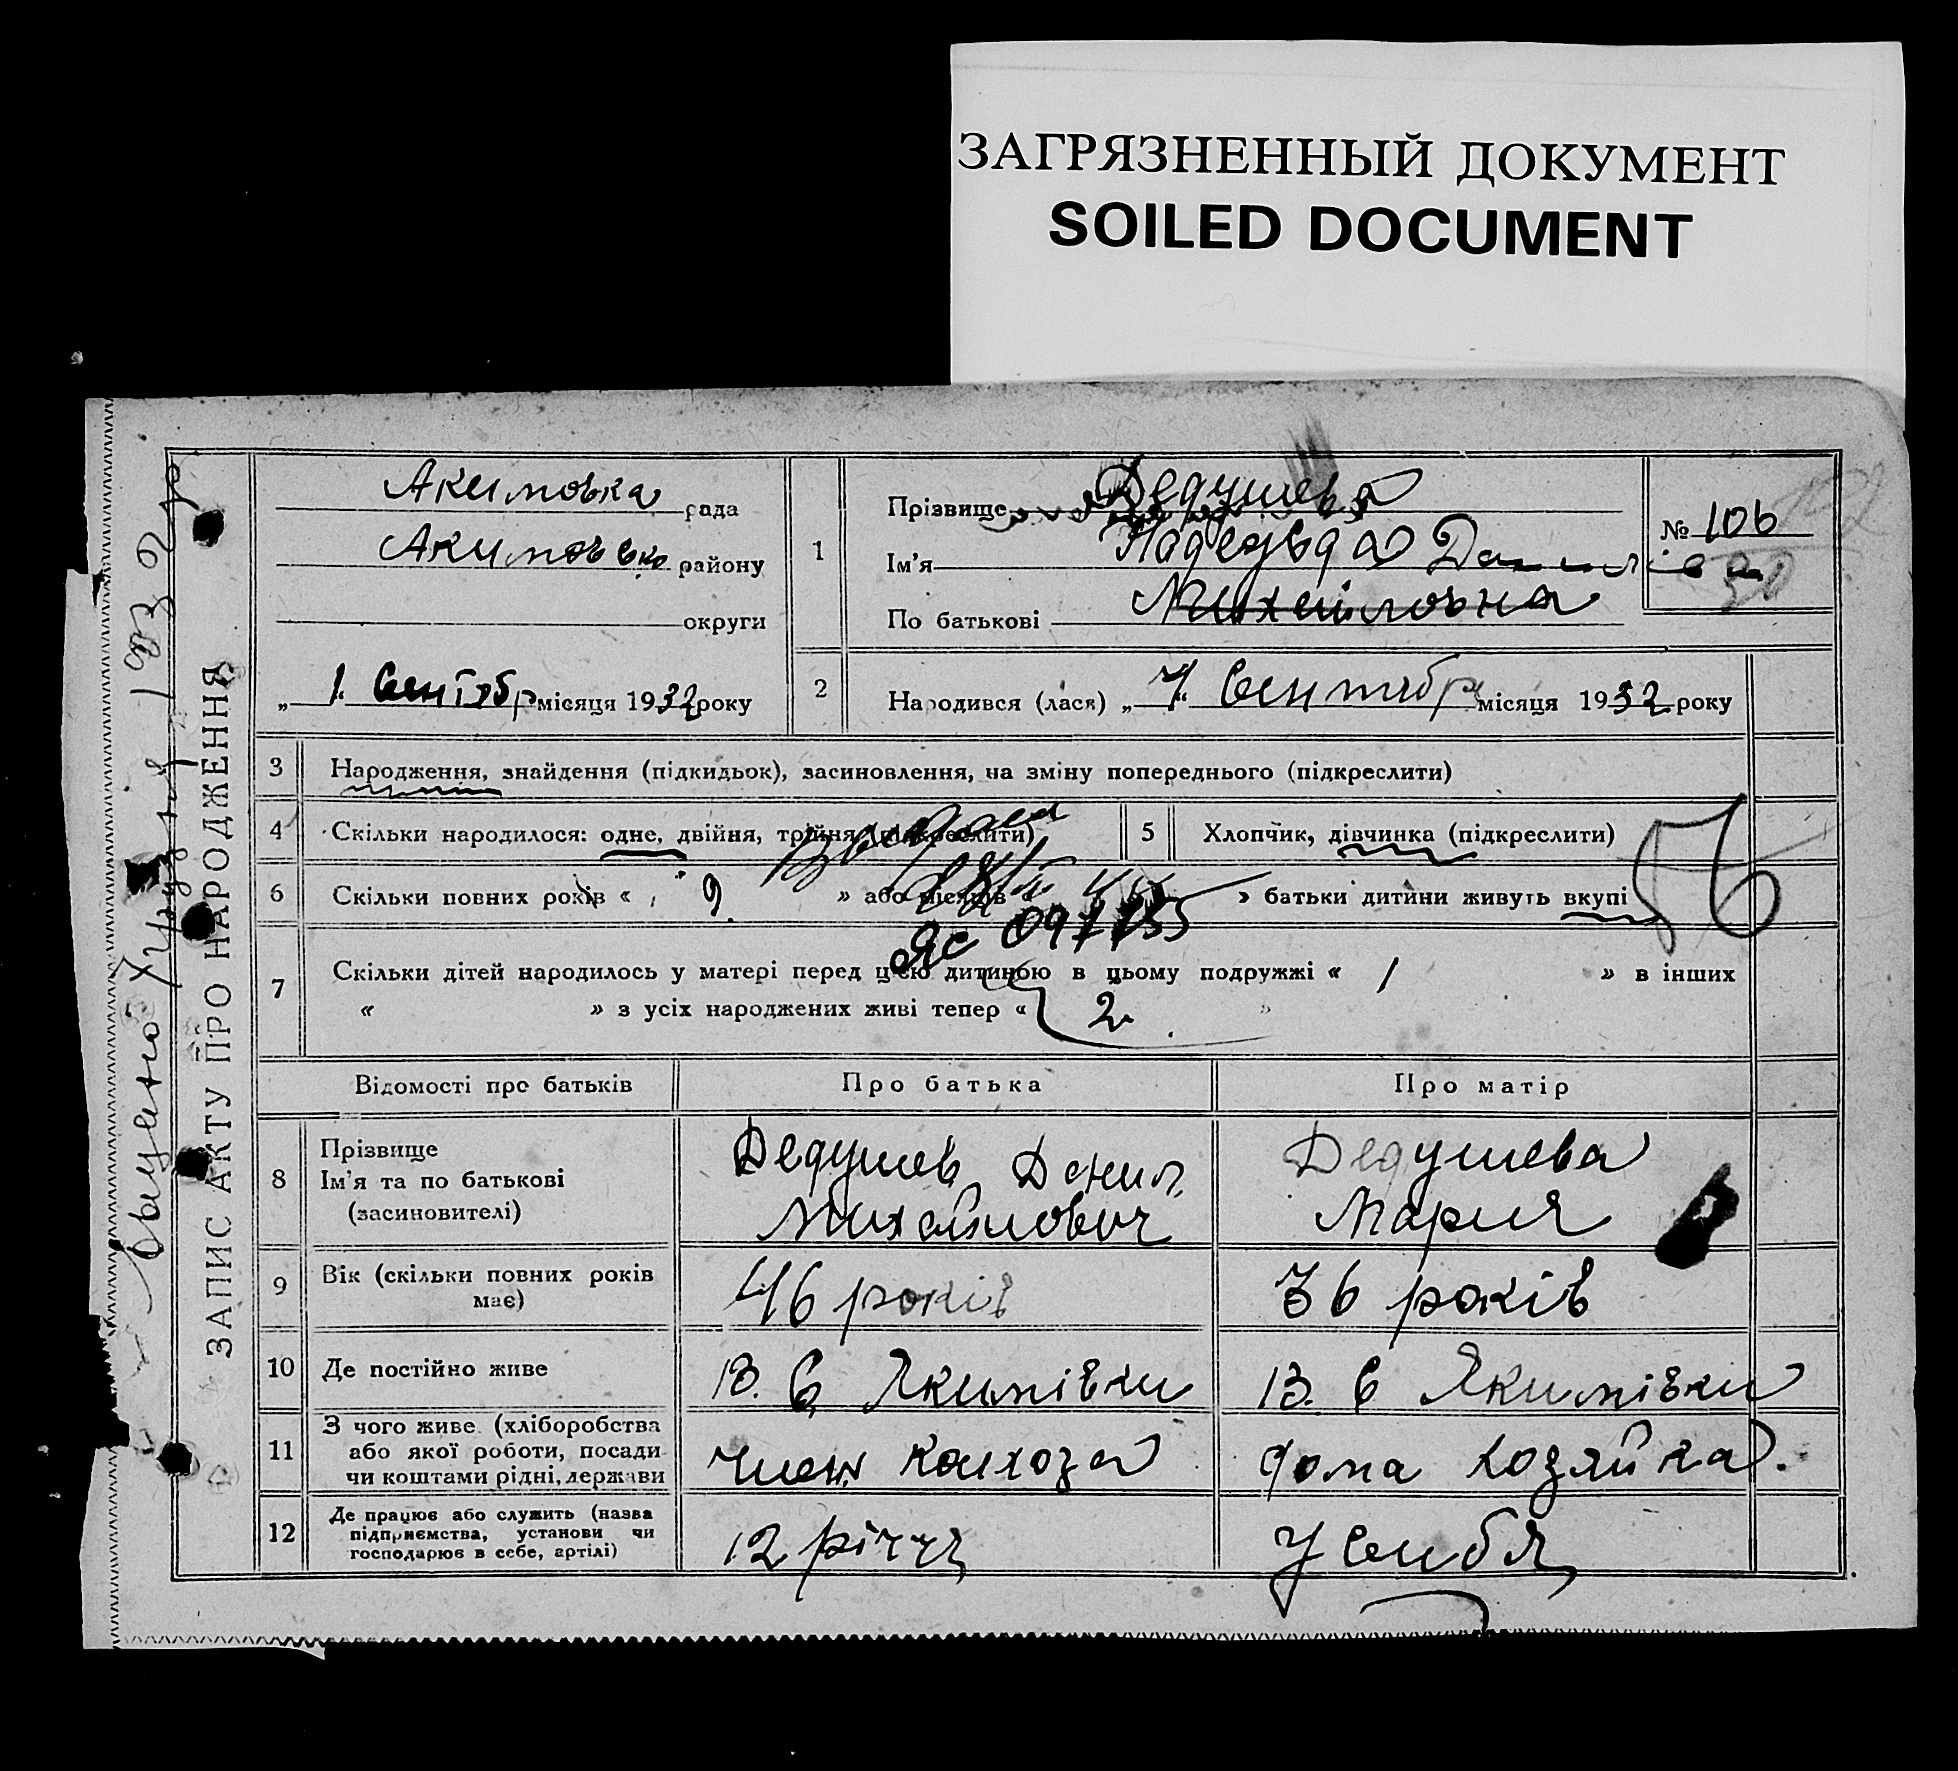 ЗАГРЯЗНЕННЫЙ ДОКУМЕНТ
SOILED DOCUMENT
ЗАПИС АКТУ ПРО НАРОДЖЕННЯ
Акимовка рада
Акимовско району
округи
„ 1. Сентябр місяця 1932 року
1
Прізвище Дедушева
Ім'я Надежда Данилівна
По батькові Михайловна
№ 106
2
Народився (лася) „ 7 " Сентябр місяця 1932 року
3 Народження, знайдення (підкидьок), засиновлення, на зміну попереднього (підкреслити)
4 Скільки народилося: одне, двійня, трійня (підкреслити)
5 Хлопчик, дівчинка (підкреслити)
6 Скільки повних років « 9. » або місяців « » батьки дитини живуть вкупі
ЯС 097755
7 Скільки дітей народилось у матері перед цією дитиною в цьому подружжі « 1 » в інших
« » з усіх народжених живі тепер « 2 »
Відомості про батьків Про батька Про матір
8 Прізвище
Ім'я та по батькові
(засиновителі)
Дедушев Данил
Михайлович
Дедушева
Мария
9 Вік (скільки повних років
має)
46 років
36 років
10 Де постійно живе
В. с Якимівки
В. с Якимівки
11 З чого живе (хліборобства
або якої роботи, посади
чи коштами рідні, держави
член колхоза
дома хозяйка.
12 Де працює або служить (назва
підприємства, установи чи
господарює в себе, артілі)
12 річчя
У себя